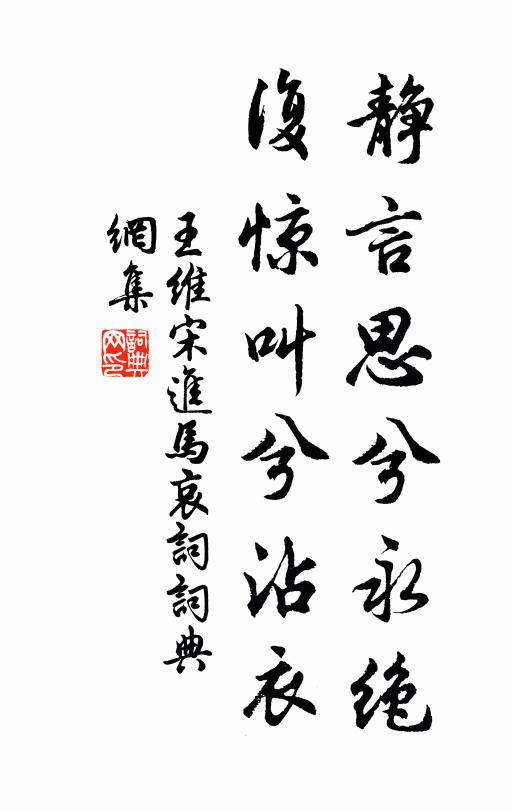 静言思兮永绝
復惊叫兮沾衣
王維宋進馬哀詞詞典
網集
詞典网印